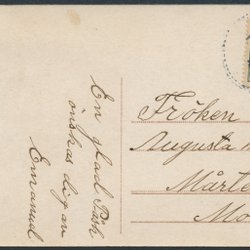 En glad Påsk
önskas dig av
Emanuel
Fröken
Augusta
Mårte
Mo